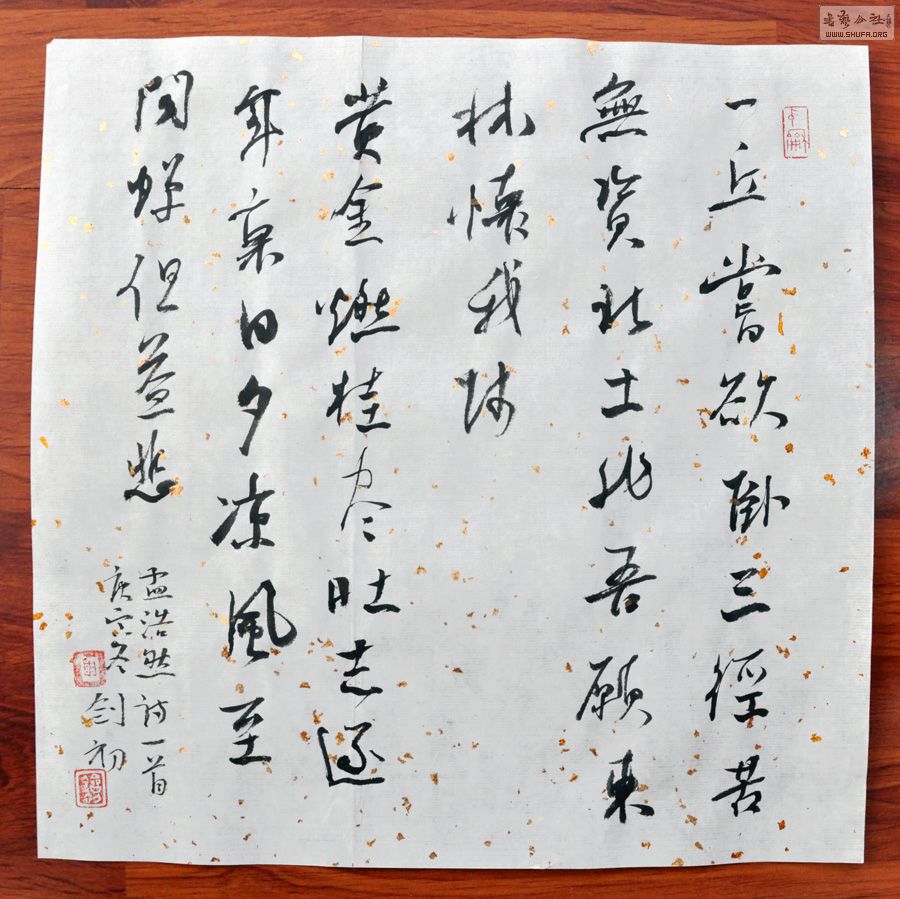 一丘嘗欲卧三徑苦
無資北土非吾願東
林懷我师
黄金燃桂尽壮志逐
年衰日夕凉風至
闻蝉但益悲
孟浩然诗一首
庚寅冬
剑初
書藝公社
WWW.SHUFA.ORG